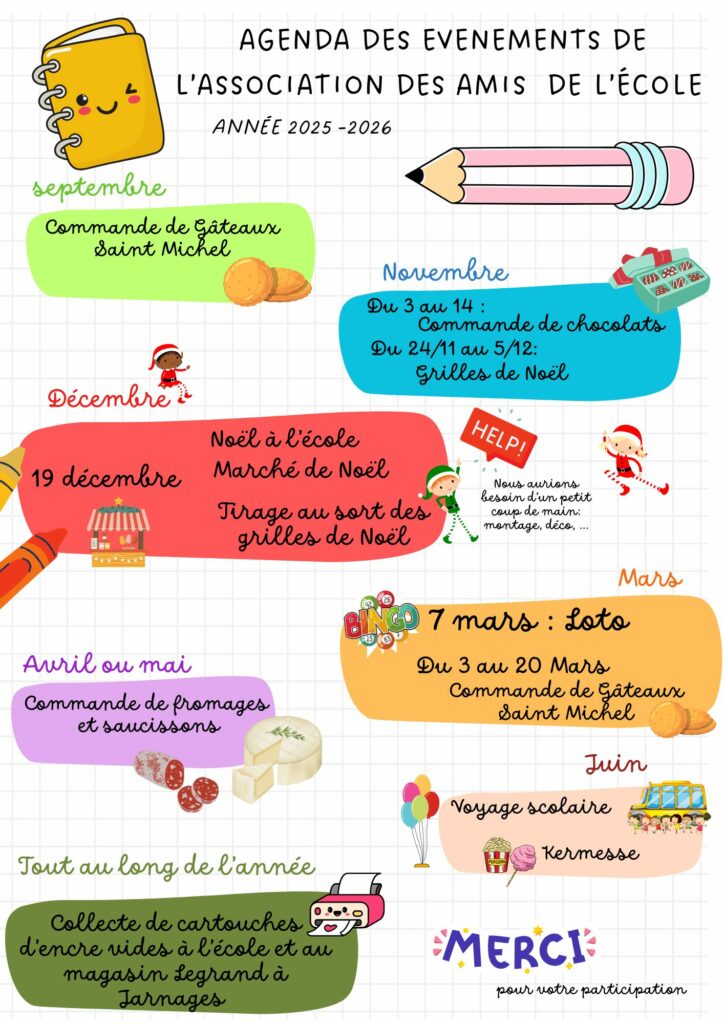 AGENDA DES EVENEMENTS DE
L'ASSOCIATION DES AMIS DE L'ÉCOLE
ANNÉE 2025 -2026
septembre
Commande de Gâteaux
Saint Michel
Novembre
Du 3 au 14 :
Commande de chocolats
Du 24/11 au 5/12:
Grilles de Noël
Décembre
19 décembre
Noël à l'école
Marché de Noël
Tirage au sort des
grilles de Noël
HELP!
Nous aurions
besoin d'un petit
coup de main:
montage, déco, ...
Mars
BINGO
7 mars : Loto
Du 3 au 20 Mars
Commande de Gâteaux
Saint Michel
Avril ou mai
Commande de fromages
et saucissons
Juin
Voyage scolaire
POPCORN
Kermesse
Tout au long de l'année
Collecte de cartouches
d'encre vides à l'école et au
magasin Legrand à
Jarnages
MERCI
pour votre participation